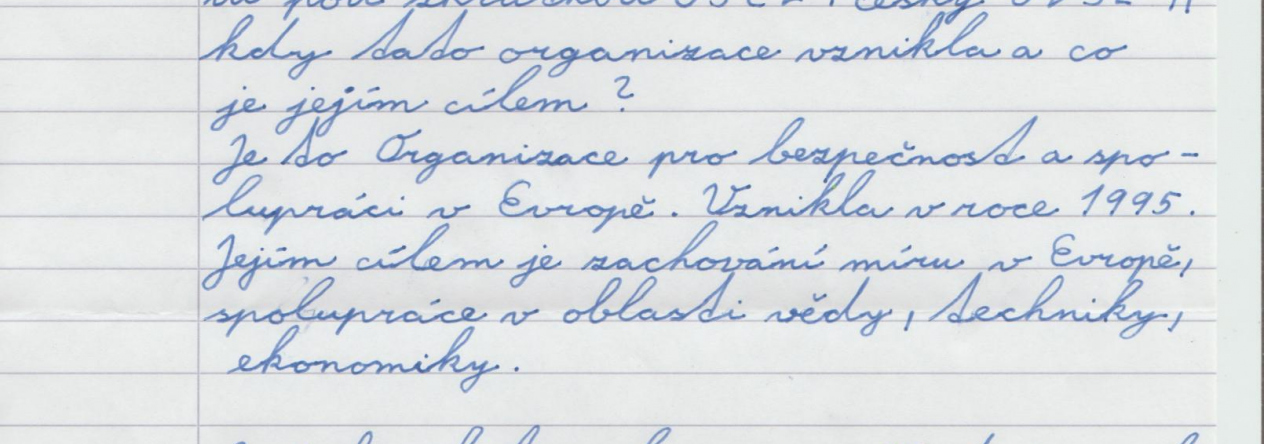 kdy tato organizace vznikla a co
je jejím cílem ?
Je to Organizace pro bezpečnost a spo-
lupráci v Evropě. Vznikla v roce 1995.
Jejím cílem je zachování míru v Evropě,
spolupráce v oblasti vědy, techniky,
ekonomiky.